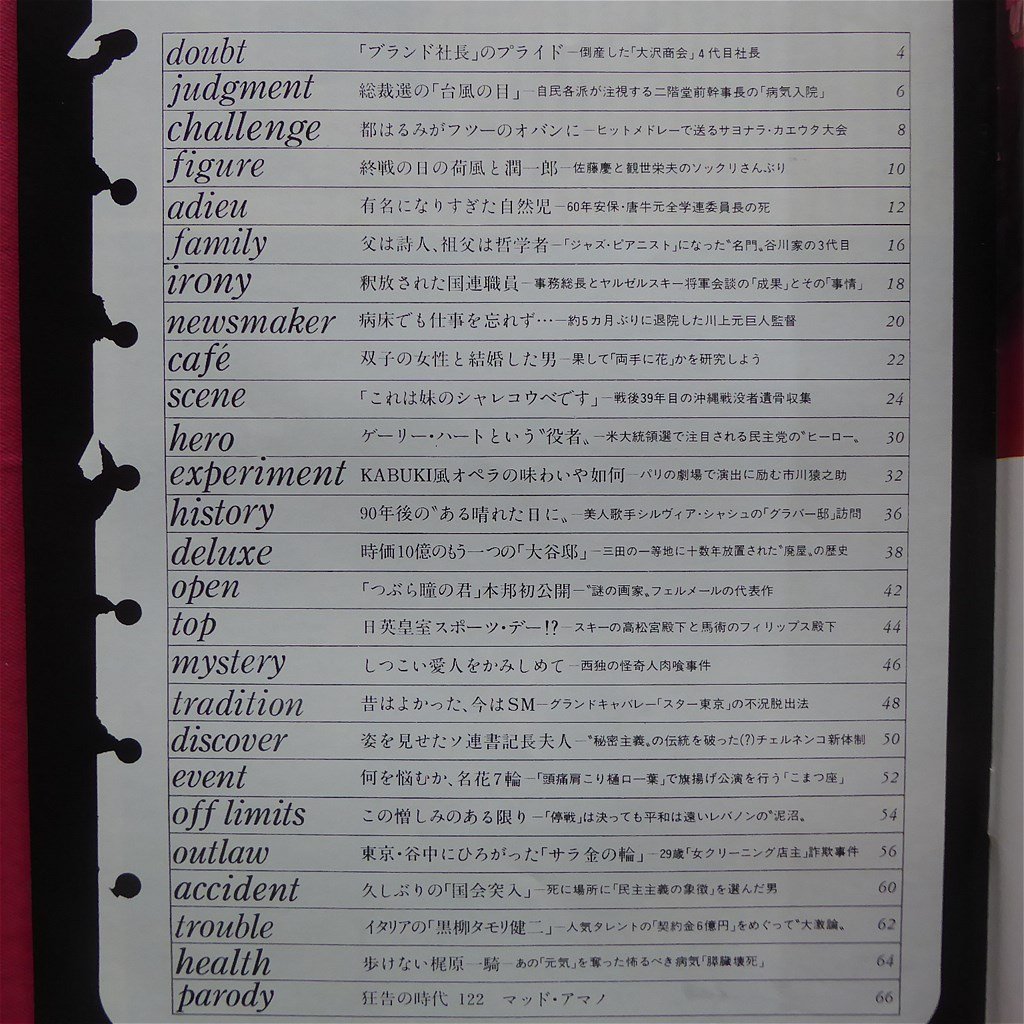 doubt 「ブランド社長」のプライド—倒産した「大沢商会」4代目社長 4
judgment 総裁選の「台風の日」—自民各派が注視する二階堂前幹事長の「病気入院」 6
challenge 都はるみがフツーのオバンに—ヒットメドレーで送るサヨナラ・カエウタ大会 8
figure 終戦の日の荷風と潤一郎—佐藤慶と観世栄夫のソックリさんぶり 10
adieu 有名になりすぎた自然児—60年安保・唐牛元全学連委員長の死 12
family 父は詩人、祖父は哲学者—「ジャズ・ピアニスト」になった〝名門〟谷川家の3代目 16
irony 釈放された国連職員—事務総長とヤルゼルスキー将軍会談の「成果」とその「事情」 18
newsmaker 病床でも仕事を忘れず…—約5カ月ぶりに退院した川上元巨人監督 20
café 双子の女性と結婚した男—果して「両手に花」かを研究しよう 22
scene 「これは妹のシャレコウベです」—戦後39年目の沖縄戦没者遺骨収集 24
hero ゲーリー・ハートという〝役者〟—米大統領選で注目される民主党の〝ヒーロー〟 30
experiment KABUKI風オペラの味わいや如何—パリの劇場で演出に励む市川猿之助 32
history 90年後の〝ある晴れた日に〟—美人歌手シルヴィア・シャシュの「グラバー邸」訪問 36
deluxe 時価10億のもう一つの「大谷邸」—三田の一等地に十数年放置された〝廃屋〟の歴史 38
open 「つぶら瞳の君」本邦初公開—〝謎の画家〟フェルメールの代表作 42
top 日英皇室スポーツ・デー!?—スキーの高松宮殿下と馬術のフィリップス殿下 44
mystery しつこい愛人をかみしめて—西独の怪奇人肉喰事件 46
tradition 昔はよかった、今はSM—グランドキャバレー「スター東京」の不況脱出法 48
discover 姿を見せたソ連書記長夫人—〝秘密主義〟の伝統を破った(?)チェルネンコ新体制 50
event 何を悩むか、名花7輪—「頭痛肩こり樋口一葉」で旗揚げ公演を行う「こまつ座」 52
off limits この憎しみのある限り—「停戦」は決っても平和は遠いレバノンの〝泥沼〟 54
outlaw 東京・谷中にひろがった「サラ金の輪」—29歳「女クリーニング店主」詐欺事件 56
accident 久しぶりの「国会突入」—死に場所に「民主主義の象徴」を選んだ男 60
trouble イタリアの「黒柳タモリ健二」—人気タレントの「契約金6億円」をめぐって〝大激論〟 62
health 歩けない梶原一騎—あの「元気」を奪った怖るべき病気「膵臓壊死」 64
parody 狂告の時代 122 マッド・アマノ 66